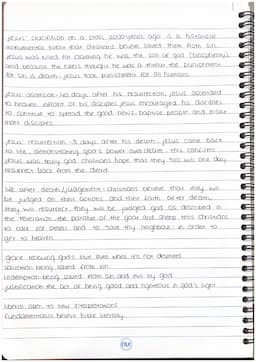 Jesus' crucifixion on a cross 2000 years ago is a historical
monumental event that christians believe saved them from sin.
Jesus was killed for claiming he was the son of god (blasphemy)
and because the rulers thought he was a threat. the punishment
for sin is death: jesus took punishment for all humans.
Jesus' ascension: 40 days after his resurrection, jesus ascended
to heaven infront of his disciples. jesus encouraged his disciples
to continue to spread the good news, baptise people and make
more disciples.
Jesus' resurrection: 3 days after his death, jesus came back
to life, demonstrating god's power over death. this confirms
jesus was truly god. christians hope that they too will one day
resurrect back from the dead.
life after death/judgement: christians believe that they will
be judged on their actions and their faith. after death,
they will resurrect. they will be judged god as described in
the revelation. the parable of the goat and sheep tells christians
to care for others and to 'love thy neighbour' in order to
get to heaven
grace: recieving god's love even when it's not deserved
salvation: being saved from sin
redemption: being saved from sin and evil by god
justification: the act of being good and righteous in god's sight
liberal: open to new interpretations
fundamentalists: believe bible literally